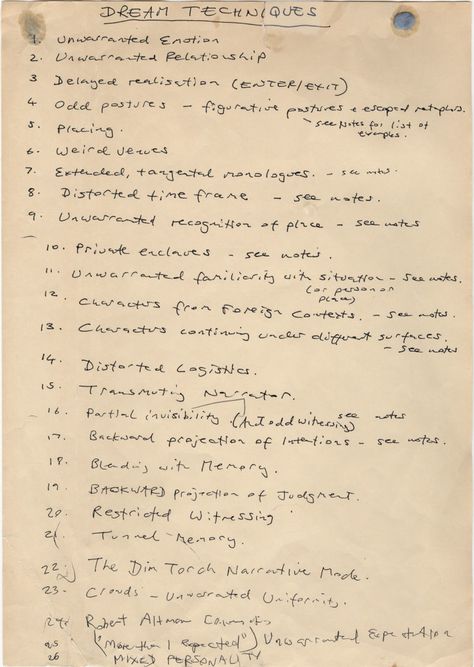 DREAM TECHNIQUES
1. Unwarranted Emotion
2. Unwarranted Relationship
3 Delayed realisation (ENTER/EXIT)
4 Odd postures - figurative postures & escaped metaphors.
- see Notes for list of
examples.
5. Placing.
6. Weird Venues
7. Extended, tangental monologues. - see notes.
8. Distorted time frame - see notes.
9. Unwarranted recognition of place - see notes
10. Private enclaves - see notes.
11. Unwarranted familiarity with situation - see notes.
(or person or
place)
12. Characters from Foreign Contexts. - see notes.
13. Characters continuing under different surfaces.
- see notes
14. Distorted Logistics.
15. Transmuting Narrator.
16. Partial invisibility (odd witnessing) see notes
17. Backward projection of Intentions - see notes.
18. Blending with Memory.
19. BACKWARD projection of Judgment.
20. Restricted Witnessing
21. Tunnel-Memory.
22. The Dim Torch Narrative Mode.
23. Crowds - Unwarranted Uniformity.
24. Robert Altman
25 ("More than I expected") Unwarranted Expectation
26 MIXED PERSONALITY